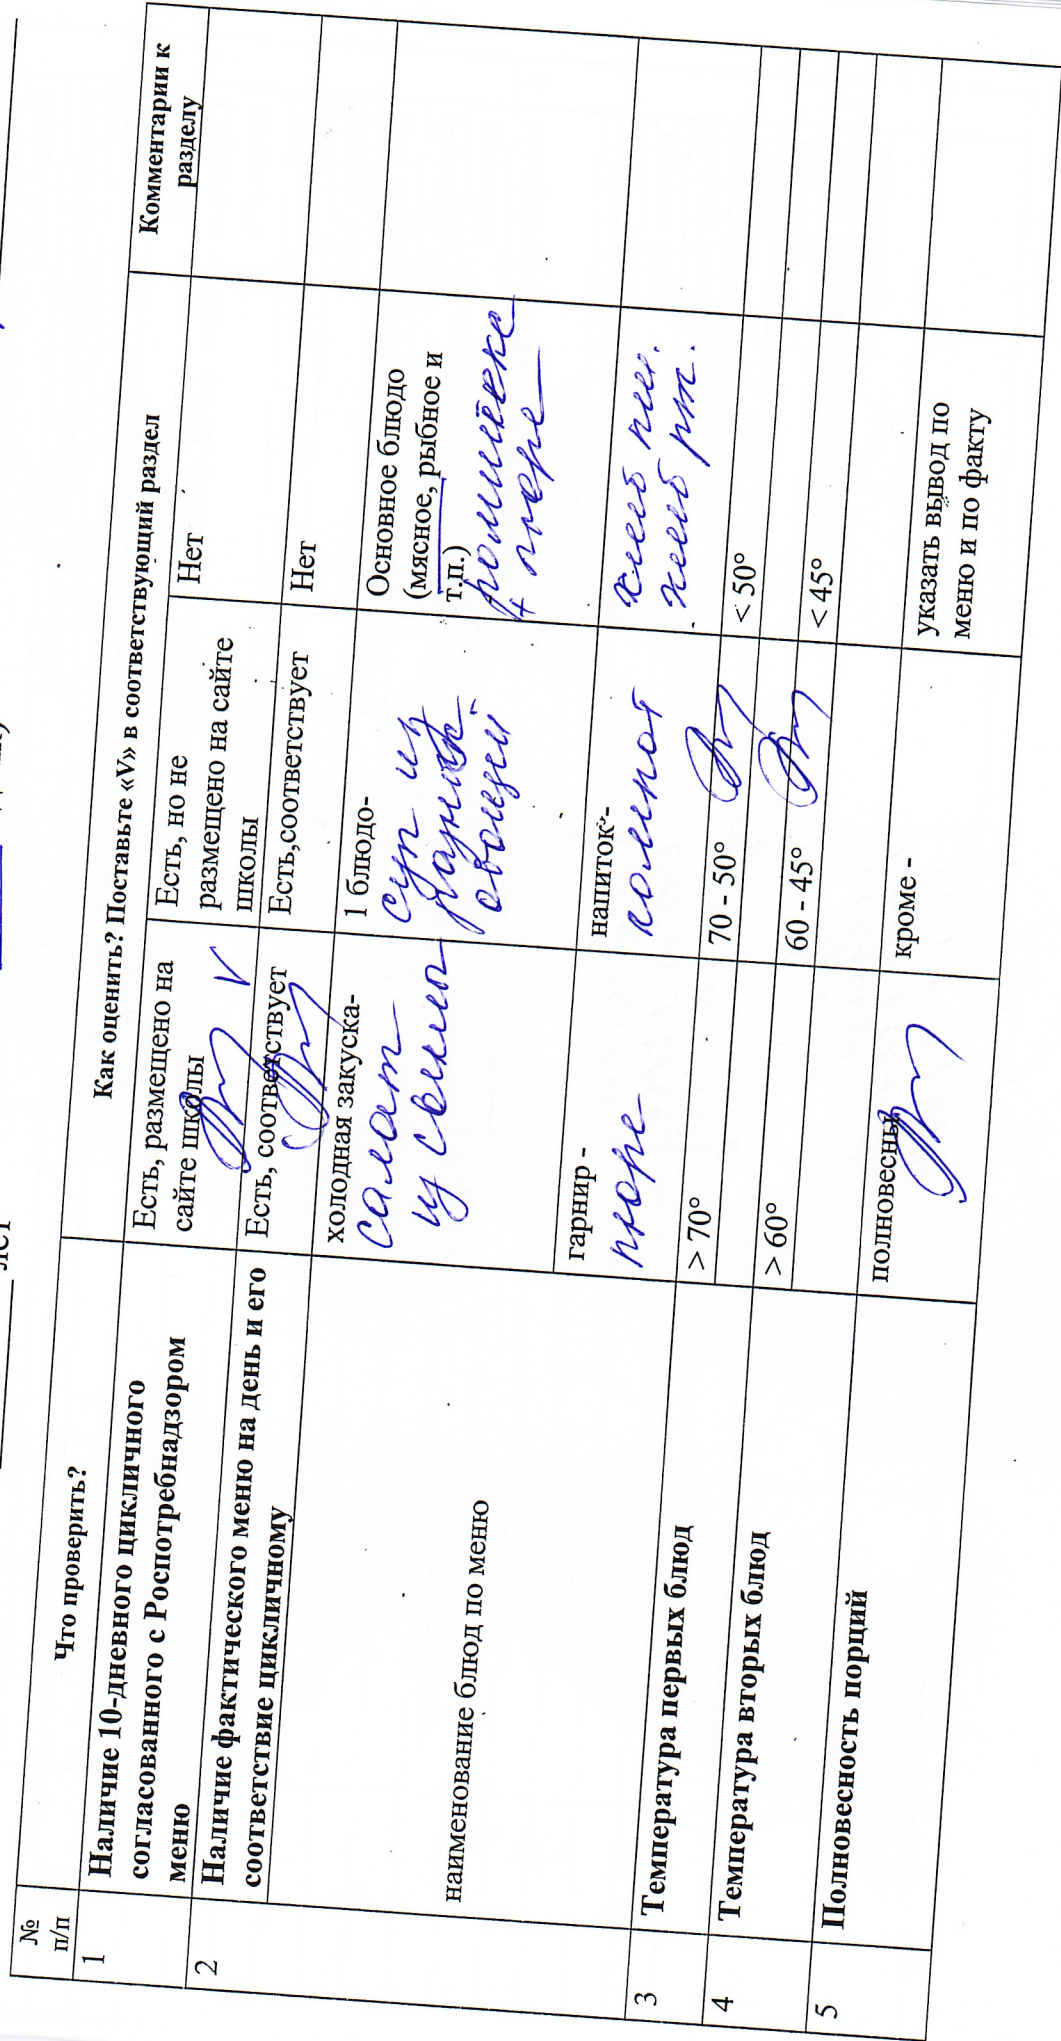 лет
№
п/п
Что проверить?
Как оценить? Поставьте «V» в соответствующий раздел
Комментарии к
разделу
1
Наличие 10-дневного цикличного
согласованного с Роспотребнадзором
меню
Есть, размещено на
сайте школы
V
Есть, но не
размещено на сайте
школы
Нет
2
Наличие фактического меню на день и его
соответствие цикличному
Есть, соответствует
Есть,соответствует
Нет
наименование блюд по меню
холодная закуска-
салат
из свеклы
1 блюдо-
суп из
овощей
Основное блюдо
(мясное, рыбное и
т.п.)
+ пюре
гарнир -
пюре
напиток-
компот
хлеб пш.
хлеб рж.
3
Температура первых блюд
> 70°
70 - 50°
< 50°
4
Температура вторых блюд
> 60°
60 - 45°
< 45°
5
Полновесность порций
полновесны
кроме -
указать вывод по
меню и по факту